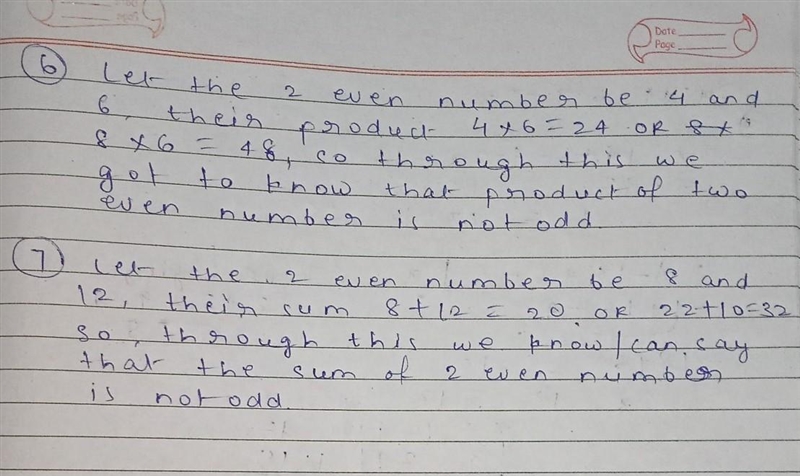 Date
Page
6 Let the 2 even number be 4 and
6, their product 4×6=24 OR 8×
8×6=48, so through this we
got to know that product of two
even number is not odd.
7 Let the 2 even number be 8 and
12, their sum 8+12=20 OR 22+10=32
so, through this we know/can say
that the sum of 2 even number
is not odd.